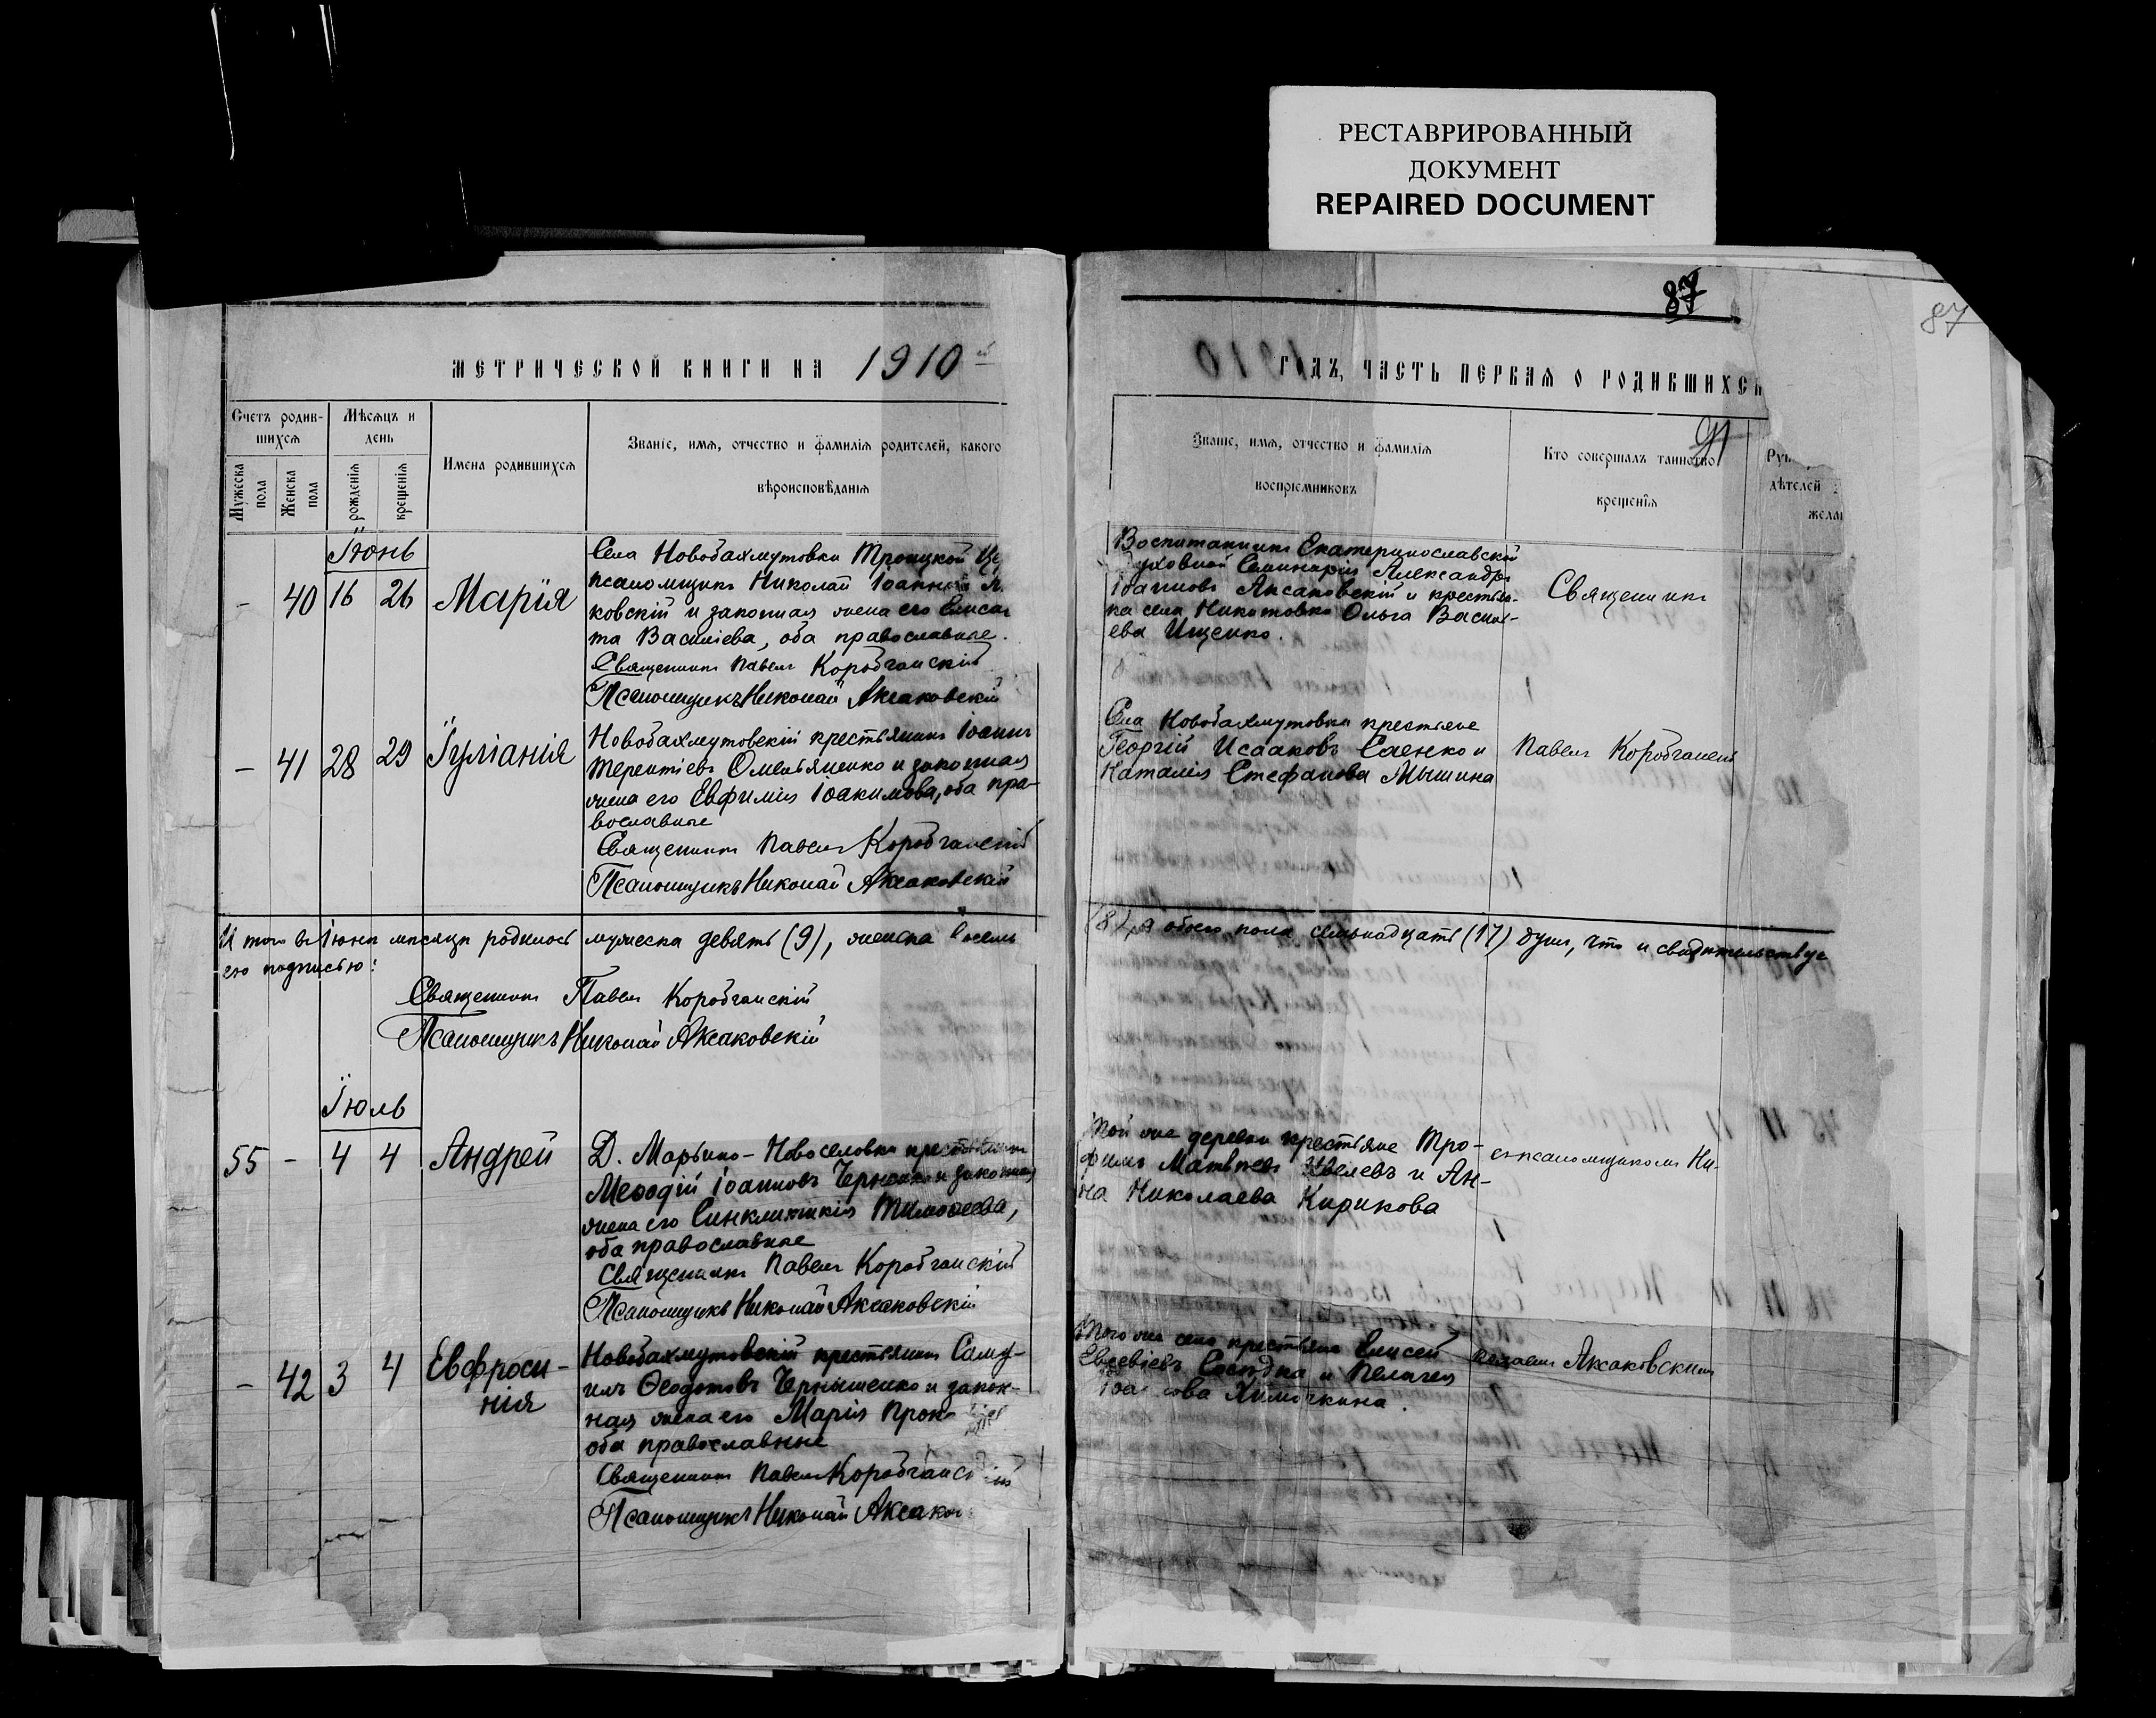 РЕСТАВРИРОВАННЫЙ
ДОКУМЕНТ
REPAIRED DOCUMENT
87
87
МЕТРИЧЕСКОЙ КНИГИ НА 1910
Счетъ родив-
шихся
Мужеска пола
Женска пола
Мѣсяцъ и
день
рожденія
крещенія
Имена родившихся
Званіе, имя, отчество и фамилія родителей, какого
вѣроисповѣданія
Іюнь
- 40 16 26 Марія
Села Новобахмутовки Троицкой Це
псаломщикъ Николай Іоанновъ А
ковскій и законная жена его Елиса
та Василіева, оба православные.
Священникъ Павелъ Коробчанскій
Псаломщикъ Николай Аксаковскій
- 41 28 29 Іуліанія
Новобахмутовскій крестьянинъ Іоаннъ
Терентіевъ Омельяненко и законная
жена его Евфимія Іоакимова, оба пра-
вославные
Священникъ Павелъ Коробчанскій
Псаломщикъ Николай Аксаковскій
Итого въ Іюнѣ мѣсяцѣ родилось мужеска девять (9), женска восемь
ею подписью:
Священникъ Павелъ Коробчанскій
Псаломщикъ Николай Аксаковскій
Іюль
55 - 4 4 Андрей
Д. Марьино-Новоселовки крестьянинъ
Меѳодій Іоанновъ и законная
жена его Синклитикія Тимоѳеева,
оба православные
Священникъ Павелъ Коробчанскій
Псаломщикъ Николай Аксаковскій
- 42 3 4 Евфроси-
нія
Новобахмутовскій крестьянинъ Саму-
илъ Ѳеодотовъ Чернышенко и закон-
ная жена его Марія Проко
оба православные
Священникъ Павелъ Коробчанскій
Псаломщикъ Николай Аксаков
ГОДЪ, ЧАСТЬ ПЕРВАЯ О РОДИВШИХСЯ
91
Званіе, имя, отчество и фамилія
воспріемниковъ
Кто совершалъ таинство
крещенія
Рук
дѣтелей
желан
Воспитанникъ Екатеринославской
Духовной Семинаріи Александръ
Іоанновъ Аксаковскій и крестьян-
ка села Никитовки Ольга Васил-
ева Ищенко.
Священникъ
Села Новобахмутовки крестьяне
Георгій Исааковъ Саенко и
Наталія Стефанова Мышина
Павелъ Коробчанскій
(8), а обоего пола семьнадцать (17) душъ, что и свидѣтельствуе
Той же деревни крестьяне Тро-
фимъ Матвѣевъ и Ан-
на Николаева Кирикова
съ псаломщикомъ Ни-
Того же села крестьяне Елисей
Евсевіевъ и Пелагея
колаемъ Аксаковскимъ